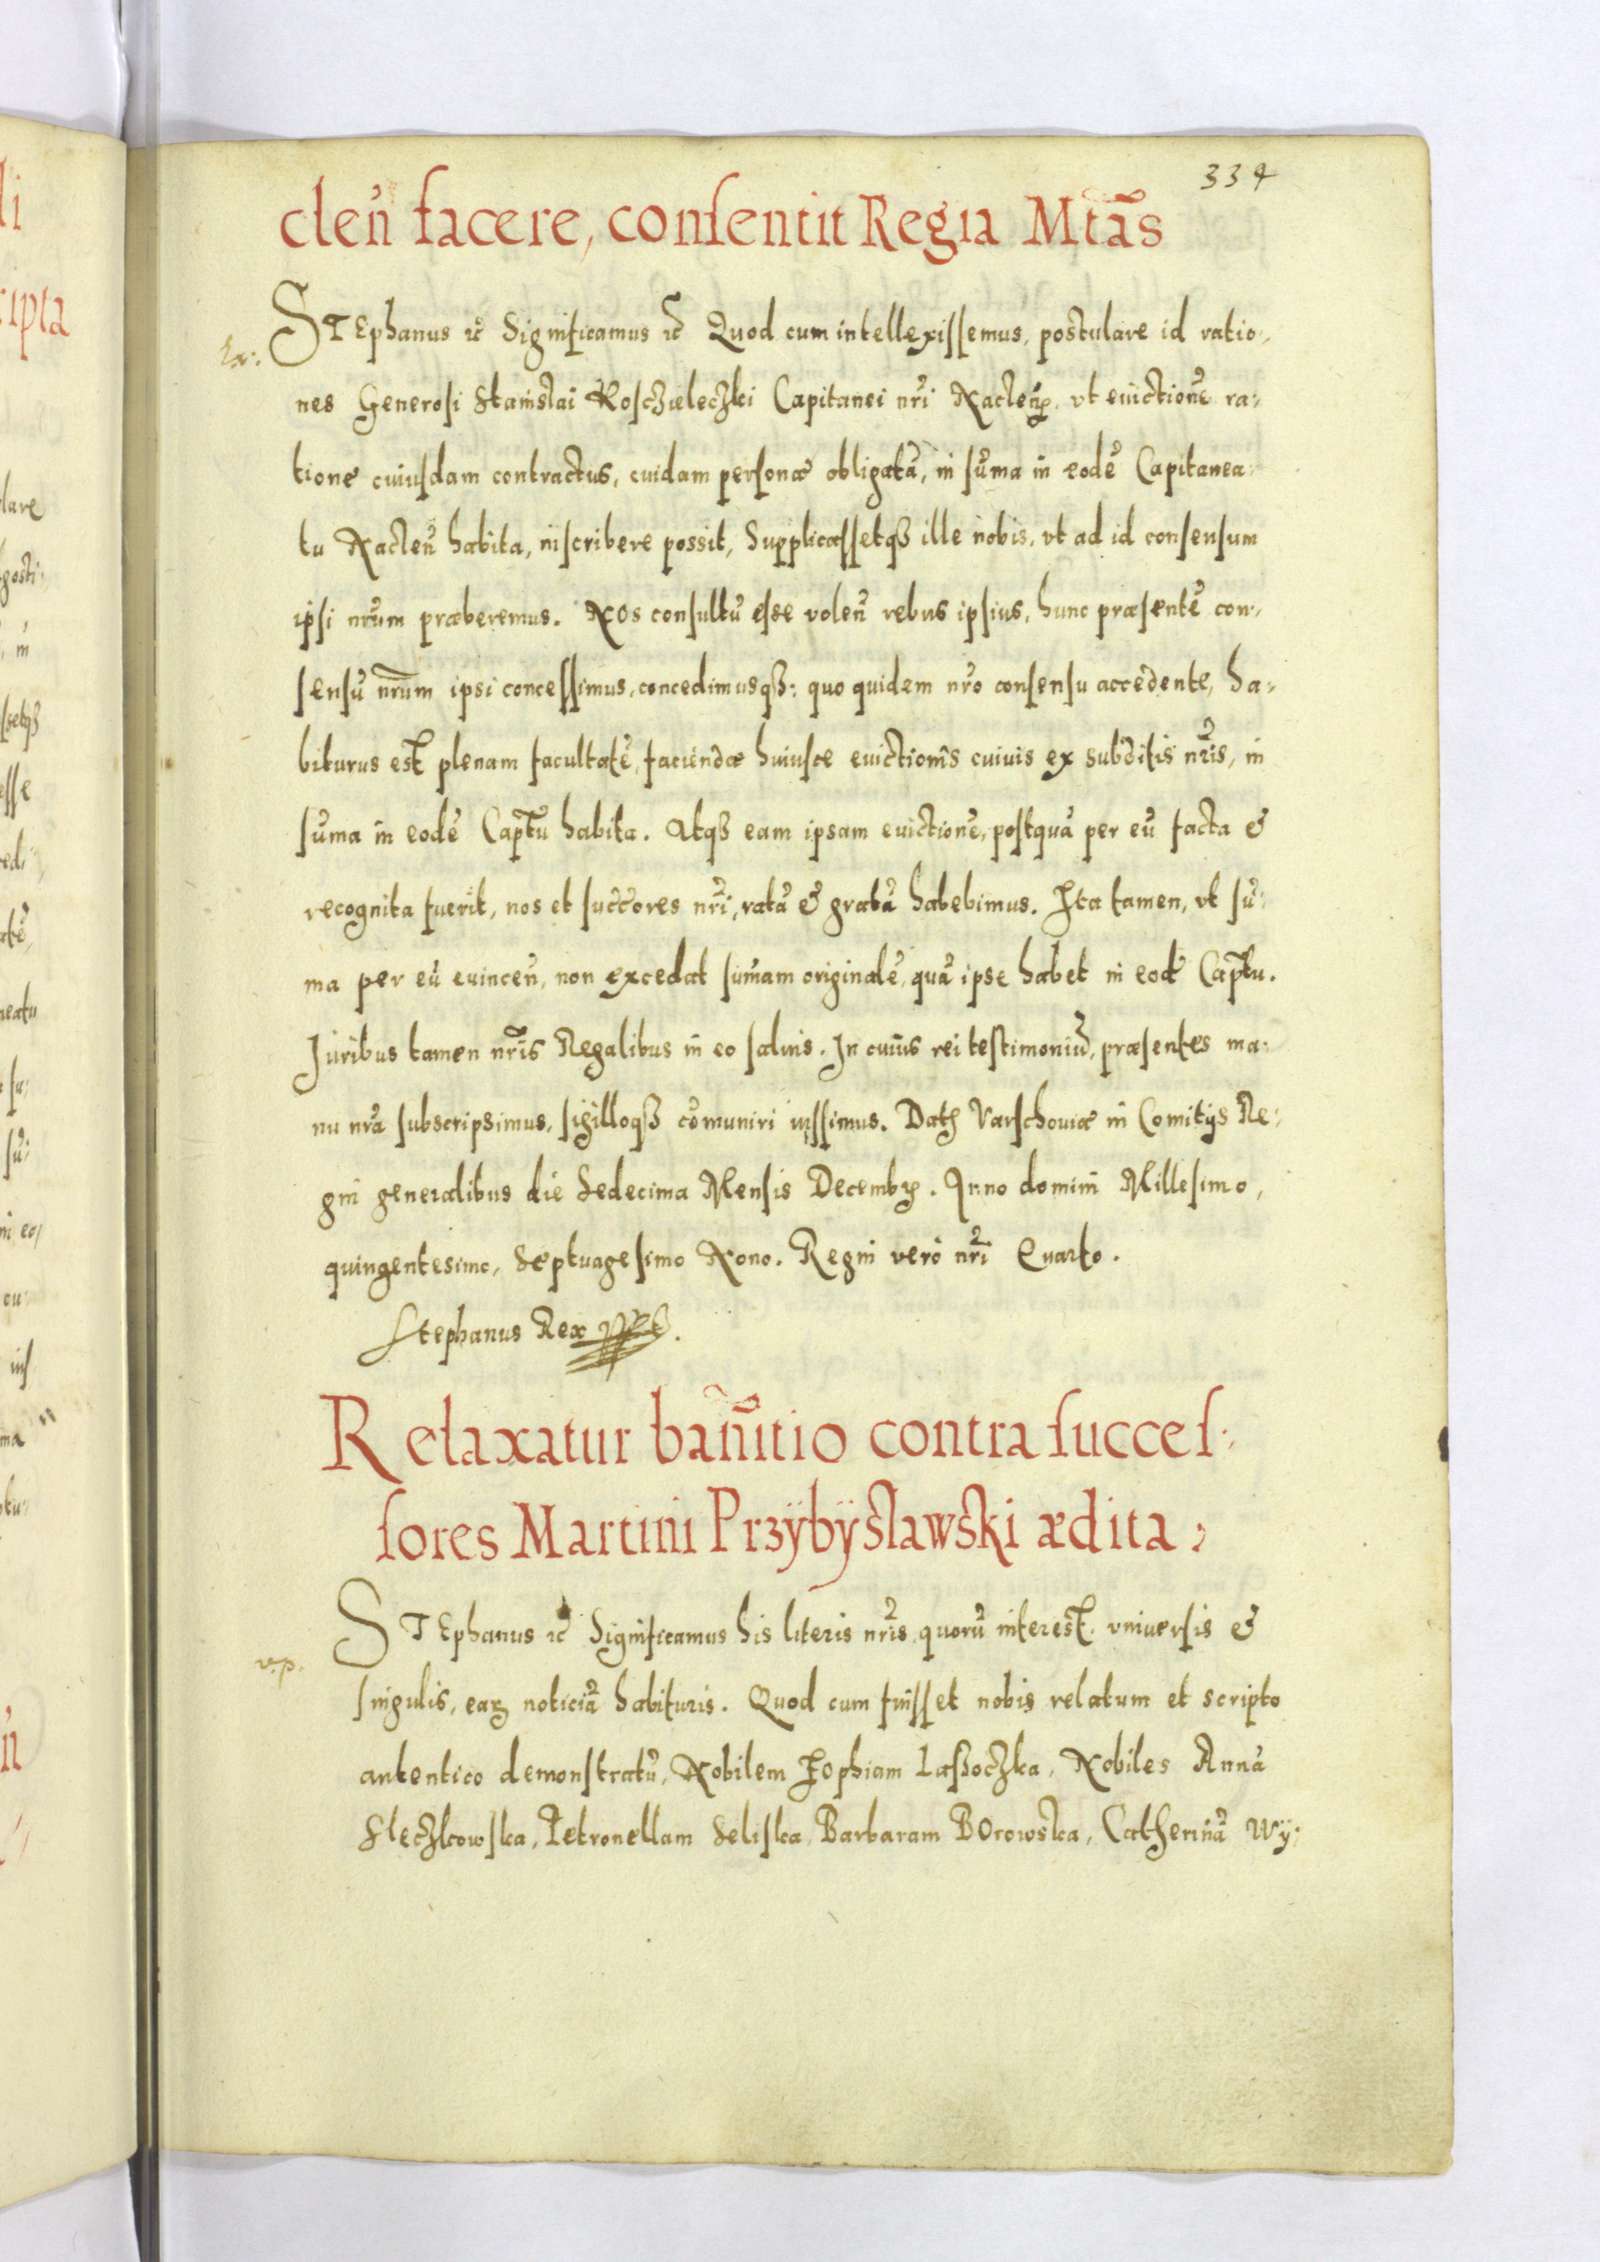 334
cleñ facere, consentit Regia Mtãs
STEphanus rč Significamus rč Quod cum intellexissemus, postulare id ratio-
nes Generosi Stanislai Kosczieleczki Capitanei nři Naclen̄, vt euictionẽ ra-
tione cuiusdam contractus, cuidam personæ obligatã, in sũma in eodẽ Capitanea-
tu Nacleñ habita, inscribere possit, Supplicassetqȝ ille nobis, vt ad id consensum
ipsi nr̃um præberemus. Nos consultũ esse voleñ rebus ipsius, hunc præsentẽ con-
sensũ nr̃um ipsi concessimus, concedimusqȝ: quo quidem nr̃o consensu accedente, ha-
biturus est plenam facultatẽ, faciendæ huiusce euictionis cuiuis ex subditis nr̃is, in
sũma in eodẽ Capt̃u habita. Atqȝ eam ipsam euictionẽ, postquã per eũ facta &
recognita fuerit, nos et succ̃ores nr̃i, ratã & gratã habebimus. Ita tamen, vt sũ-
ma per eũ euinceñ, non excedat sũmam originalẽ, quã ipse habet in eod̃ Capt̃u.
Juribus tamen nr̃is Regalibus in eo saluis. In cuius rei testimoniũ, præsentes ma-
nu nr̃a subscripsimus, sigilloqȝ cõmuniri iussimus. Datȝ Varschouiæ in Comitijs Re-
gni generalibus die Sedecima Mensis Decembꝝ. Anno domini Millesimo,
quingentesimo, Septuagesimo Nono. Regni vero nr̃i Quarto.
Stephanus Rex sst̃.
Relaxatur bañitio contra succes-
sores Martini Przÿbÿslawski ædita
STEphanus rč Significamus his literis nr̃is, quorũ interest, vniuersis &
singulis, eaꝝ noticiã habituris. Quod cum fuisset nobis relatum et scripto
autentico demonstratũ, Nobilem Zophiam Lassoczka, Nobiles Annã
Sleczkowska, Petronellam Seliska, Barbaram Borowska, Catherinã Wÿ-